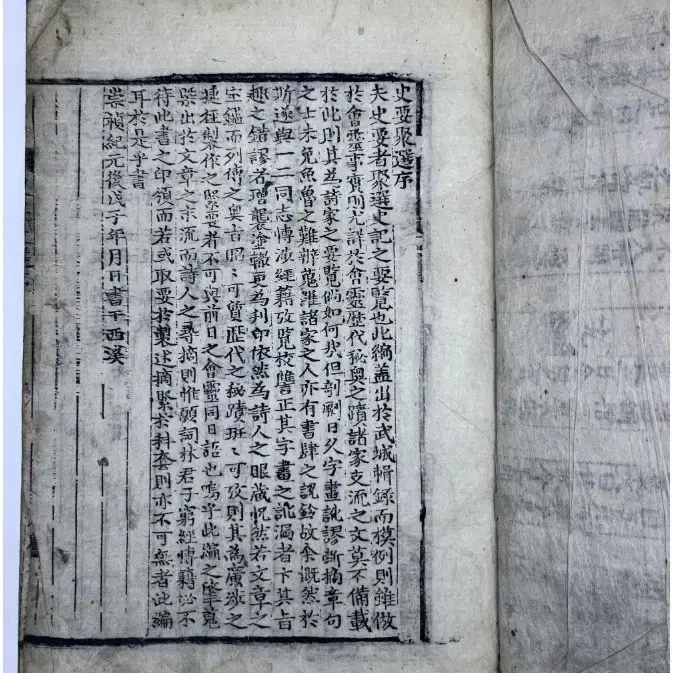 史要聚選序
夫史要者聚選史記之要覽也此編盖出於武城輯錄而模例則雖倣
於會靈事實則尤詳於會靈歴代秘奥之蹟諸家支流之文莫不備載
於此則其並諸家之要覽倘如何我但剞劂日久字畫訛謬斷摘章句
之士未免魚魯之難辨蒐羅諸家之人亦有書肆之誤鈴故余慨然於
斯遂與一二同志博渉經籍攷覽校讐正其字畫之訛漏者卞其上旨
趣之錯謬者增襲塗轍更為刋印依然為詩人之眼藏怳然若文章之
宝鑑而列傳之奥古昭〻可質歴代之秘蹟班〻可攷則其為廣渉之
捷徑製作之緊要者不可與前日之會靈同日語也嗚乎此編之蒐
槩出於文章之末流而詩人之尋摘則惟願詞林君子窮經博籍必不
待此書之印領而若或取要於製述摘緊於科套則亦不可無者此編
耳於是乎書
崇禎紀元後戊子年月日書于西溪